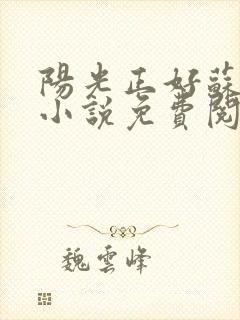 陽光正好蘇
小說免費閱
魏雲峰